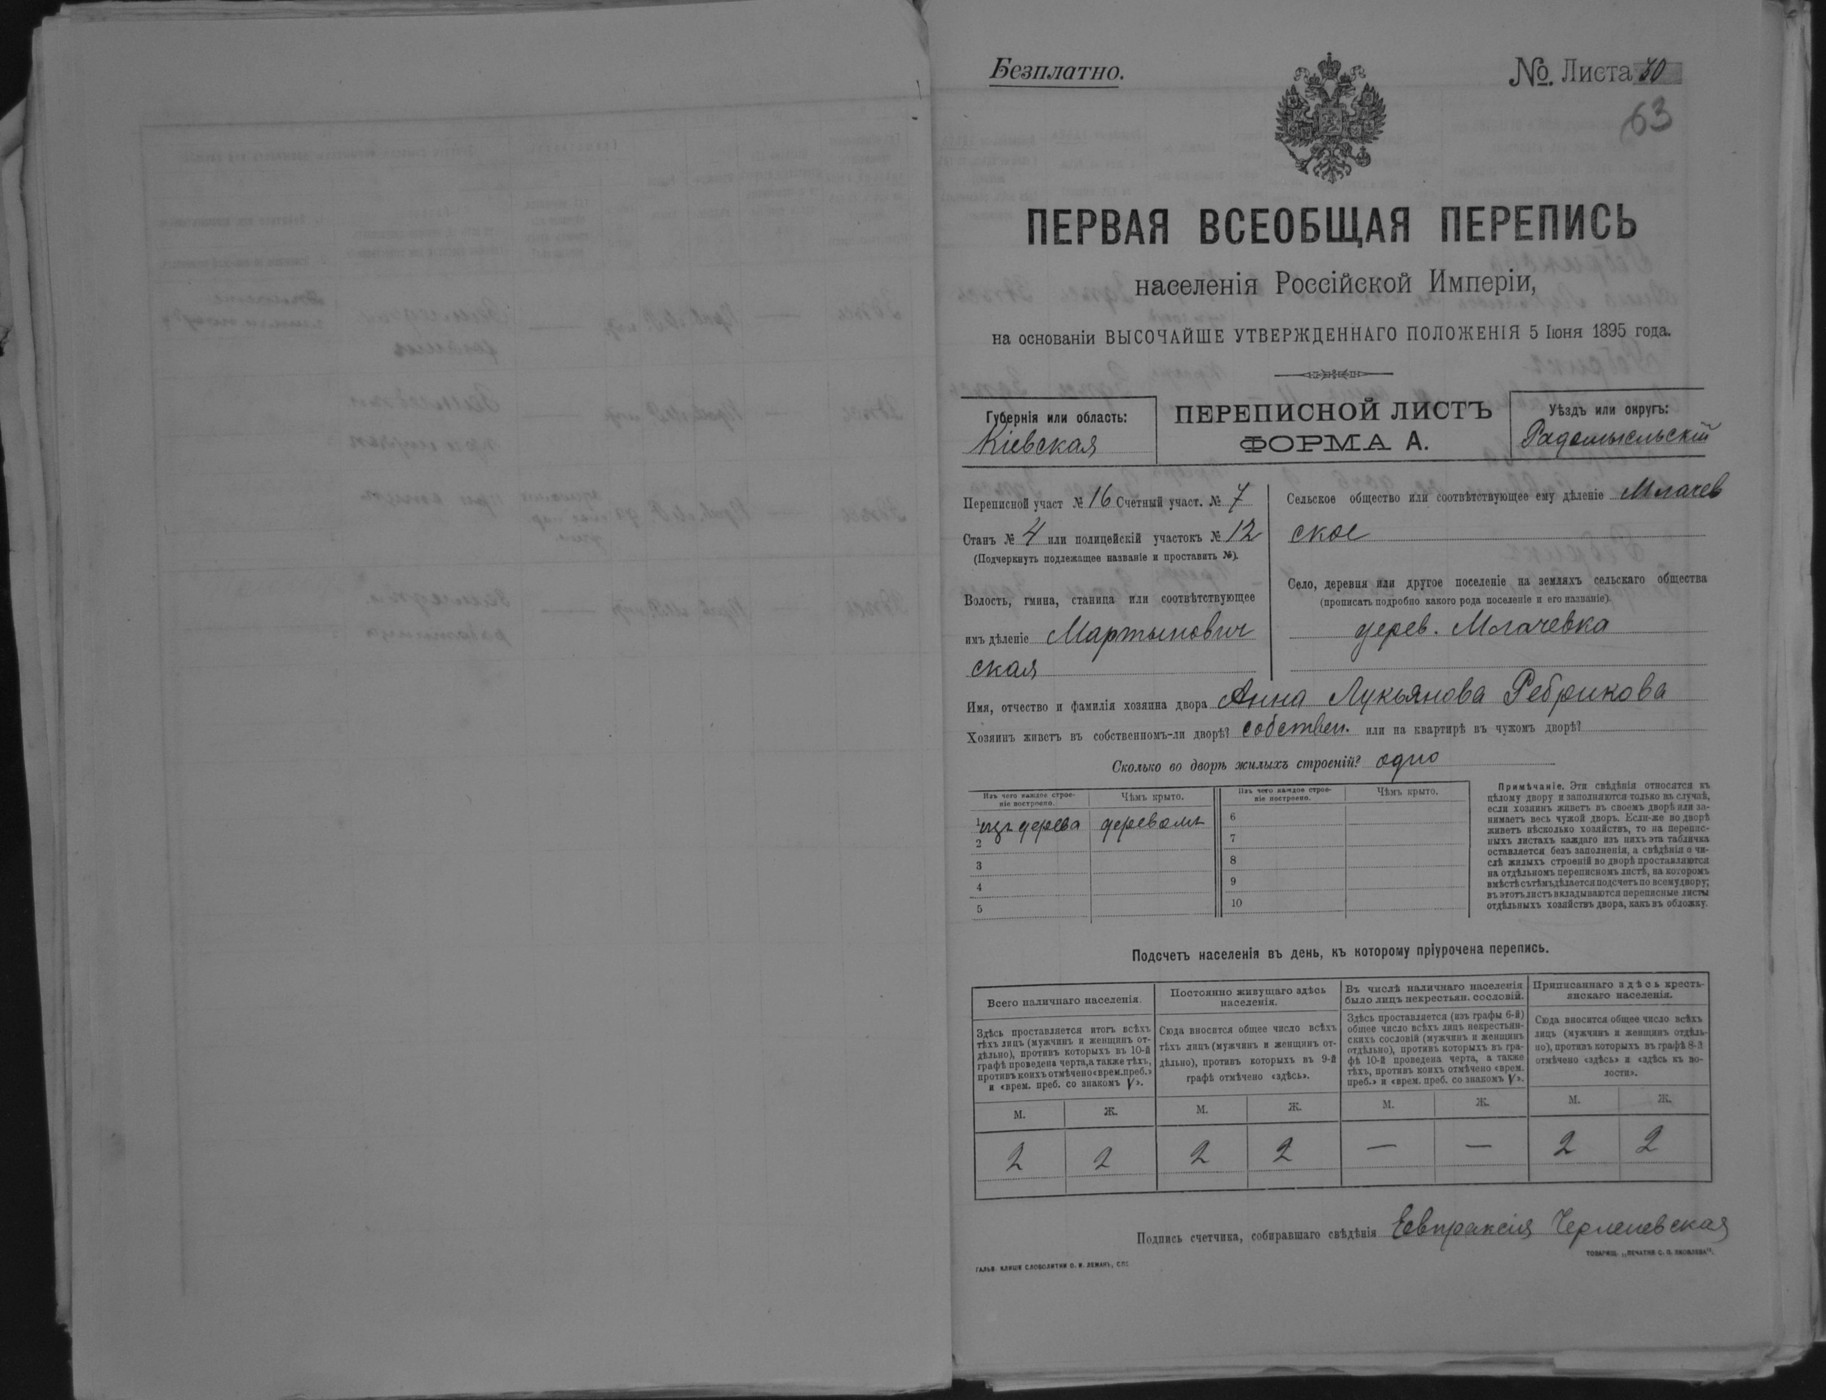 Безплатно.
№ Листа 30
63
ПЕРВАЯ ВСЕОБЩАЯ ПЕРЕПИСЬ
населенія Россійской Имперіи,
на основаніи ВЫСОЧАЙШЕ УТВЕРЖДЕННАГО ПОЛОЖЕНІЯ 5 Іюня 1895 года.
Губернія или область:
Кіевская
ПЕРЕПИСНОЙ ЛИСТЪ
ФОРМА А.
Уѣздъ или округъ:
Радомысльскій
Переписной участ № 16 Счетный участ. № 7
Станъ № 4 или полицейскій участокъ № 12
(Подчеркнуть подлежащее названіе и проставить №).
Волость, гмина, станица или соотвѣтствующее
имъ дѣленіе Мартынович
ская
Сельское общество или соотвѣтствующее ему дѣленіе Млачев
ское
Село, деревня или другое поселеніе на земляхъ сельскаго общества
(прописать подробно какого рода поселеніе и его названіе).
дерев. Млачевка
Имя, отчество и фамилія хозяина двора Анна Лукьянова Ребрикова
Хозяинъ живетъ въ собственномъ-ли дворѣ? собствен. или на квартирѣ въ чужомъ дворѣ?
Сколько во дворѣ жилыхъ строеній? одно
Изъ чего каждое строе-
ніе построено.
Чѣмъ крыто.
Изъ чего каждое строе-
ніе построено.
Чѣмъ крыто.
1 изъ дерева деревомъ 6
2 7
3 8
4 9
5 10
Примѣчаніе. Эти свѣдѣнія относятся къ
цѣлому двору и заполняются только въ случаѣ,
если хозяинъ живетъ въ своемъ дворѣ или за-
нимаетъ весь чужой дворъ. Если-же во дворѣ
живетъ нѣсколько хозяйствъ, то на перепис-
ныхъ листахъ каждаго изъ нихъ эта табличка
оставляется безъ заполненія, а свѣдѣнія о чи-
слѣ жилыхъ строеній во дворѣ проставляются
на отдѣльномъ переписномъ листѣ, на которомъ
вмѣстѣ съ тѣмъ дѣлается подсчетъ по всему двору;
въ этотъ листъ вкладываются переписные листы
отдѣльныхъ хозяйствъ двора, какъ въ обложку.
Подсчетъ населенія въ день, къ которому пріурочена перепись.
Всего наличнаго населенія.
Здѣсь проставляется итогъ всѣхъ
тѣхъ лицъ (мужчинъ и женщинъ от-
дѣльно), противъ которыхъ въ 10-й
графѣ проведена черта, а также тѣхъ,
противъ коихъ отмѣчено «врем. преб.»
и «врем. преб. со знакомъ V».
Постоянно живущаго здѣсь
населенія.
Сюда вносится общее число всѣхъ
тѣхъ лицъ (мужчинъ и женщинъ от-
дѣльно), противъ которыхъ въ 9-й
графѣ отмѣчено «здѣсь».
Въ числѣ наличнаго населенія
было лицъ некрестьян. сословій.
Здѣсь проставляется (изъ графы 6-й)
общее число всѣхъ лицъ некрестьян-
скихъ сословій (мужчинъ и женщинъ
отдѣльно), противъ которыхъ въ гра-
фѣ 10-й проведена черта, а также
тѣхъ, противъ коихъ отмѣчено «врем.
преб.» и «врем. преб. со знакомъ V».
Приписаннаго здѣсь кресть-
янскаго населенія.
Сюда вносится общее число всѣхъ
лицъ (мужчинъ и женщинъ отдѣль-
но), противъ которыхъ въ графѣ 8-й
отмѣчено «здѣсь» и «здѣсь къ во-
лости».
М. Ж. М. Ж. М. Ж. М. Ж.
2 2 2 2 — — 2 2
Подпись счетчика, собиравшаго свѣдѣнія Евпраксія
ТОВАРИЩ. „ПЕЧАТНЯ С. П. ЯКОВЛЕВА".
ГАЛЬВ. КЛИШЕ СЛОВОЛИТНИ О. И. ЛЕМАНЪ, СПБ.